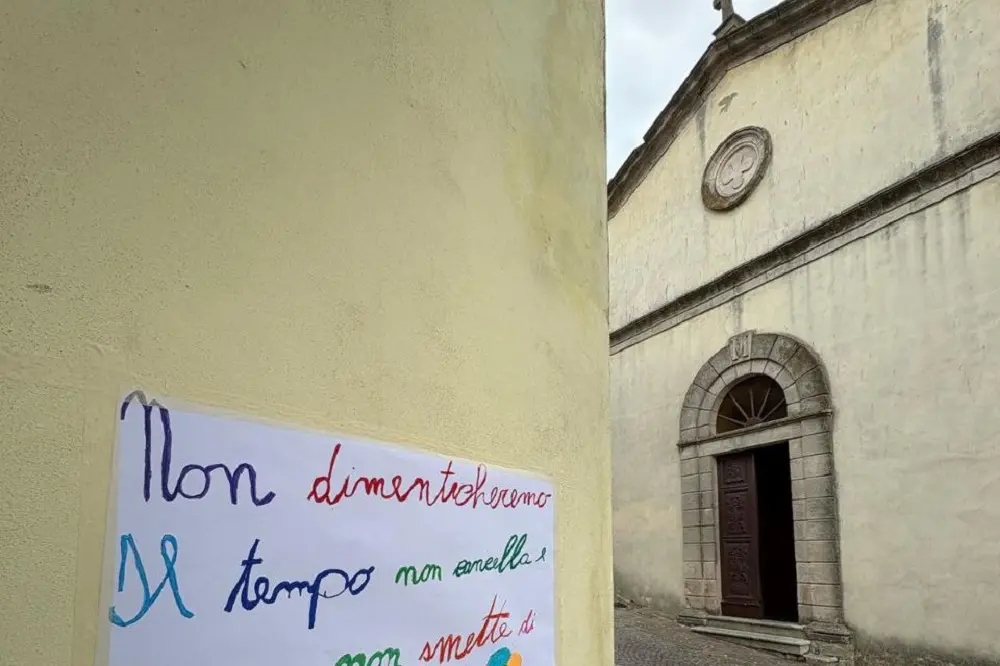 Non dimenticheremo
Il tempo non cancella e
non smette di